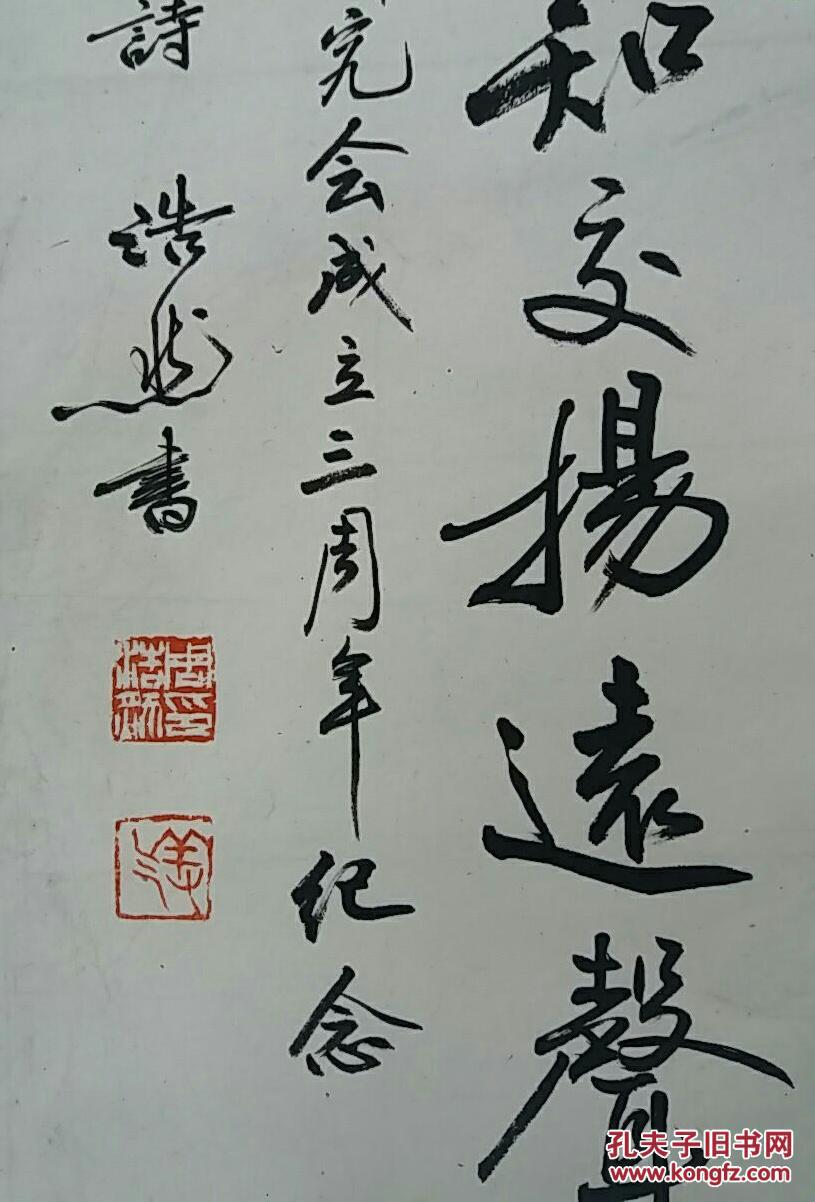 知交揚遠聲
究会成立三周年纪念
詩 浩然書
孔夫子旧书网
www.kongfz.com